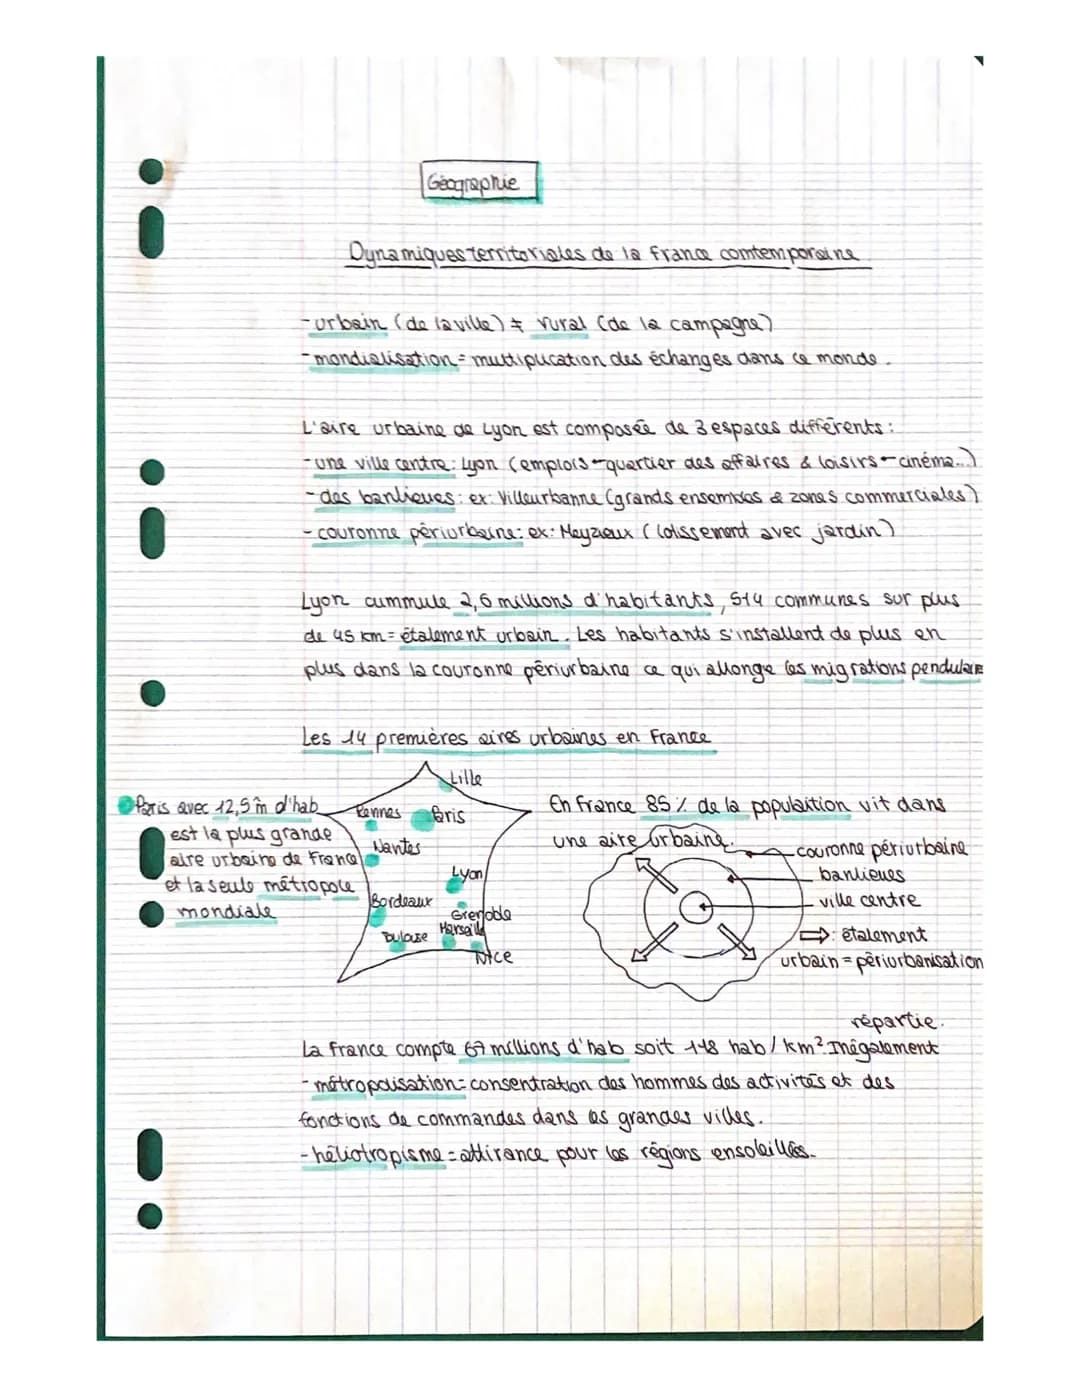 Géographie
Dynamiques territoriales de la france comtemporaine
-urbain (de la ville) ≠ rural (de la campagne)
-mondialisation = multiplication des échanges dans le monde.
L'aire urbaine de Lyon est composée de 3 espaces différents :
-une ville centre : Lyon (emplois-quartier des affaires & loisirs-cinéma...)
-des banlieues : ex : Villeurbanne (grands ensembles & zones commerciales)
- couronne périurbaine : ex : Meyzieux (lotissement avec jardin)
Lyon cummule 2,6 millions d'habitants, 514 communes sur plus
de 45 km = étalement urbain. Les habitants s'installent de plus en
plus dans la couronne périurbaine ce qui allonge les migrations pendulaire
Les 14 premières aires urbaines en France
Lille
Rennes
Paris
Nantes
Lyon
Bordeaux
Grenoble
Marseille
Toulouse
Nice
Paris avec 12,5 m d'hab
est la plus grande
aire urbaine de France
et la seule métropole
mondiale
En france 85 % de la populaition vit dans
une aire urbaine.
couronne périurbaine
banlieues
ville centre
⇒ : étalement
urbain = périurbanisation
La france compte 67 millions d'hab soit 118 hab / km². Inégalement
répartie.
- métropolisation = consentration des hommes des activités et des
fonctions de commandes dans les grandes villes.
- héliotropisme = attirance pour les régions ensoleillées.